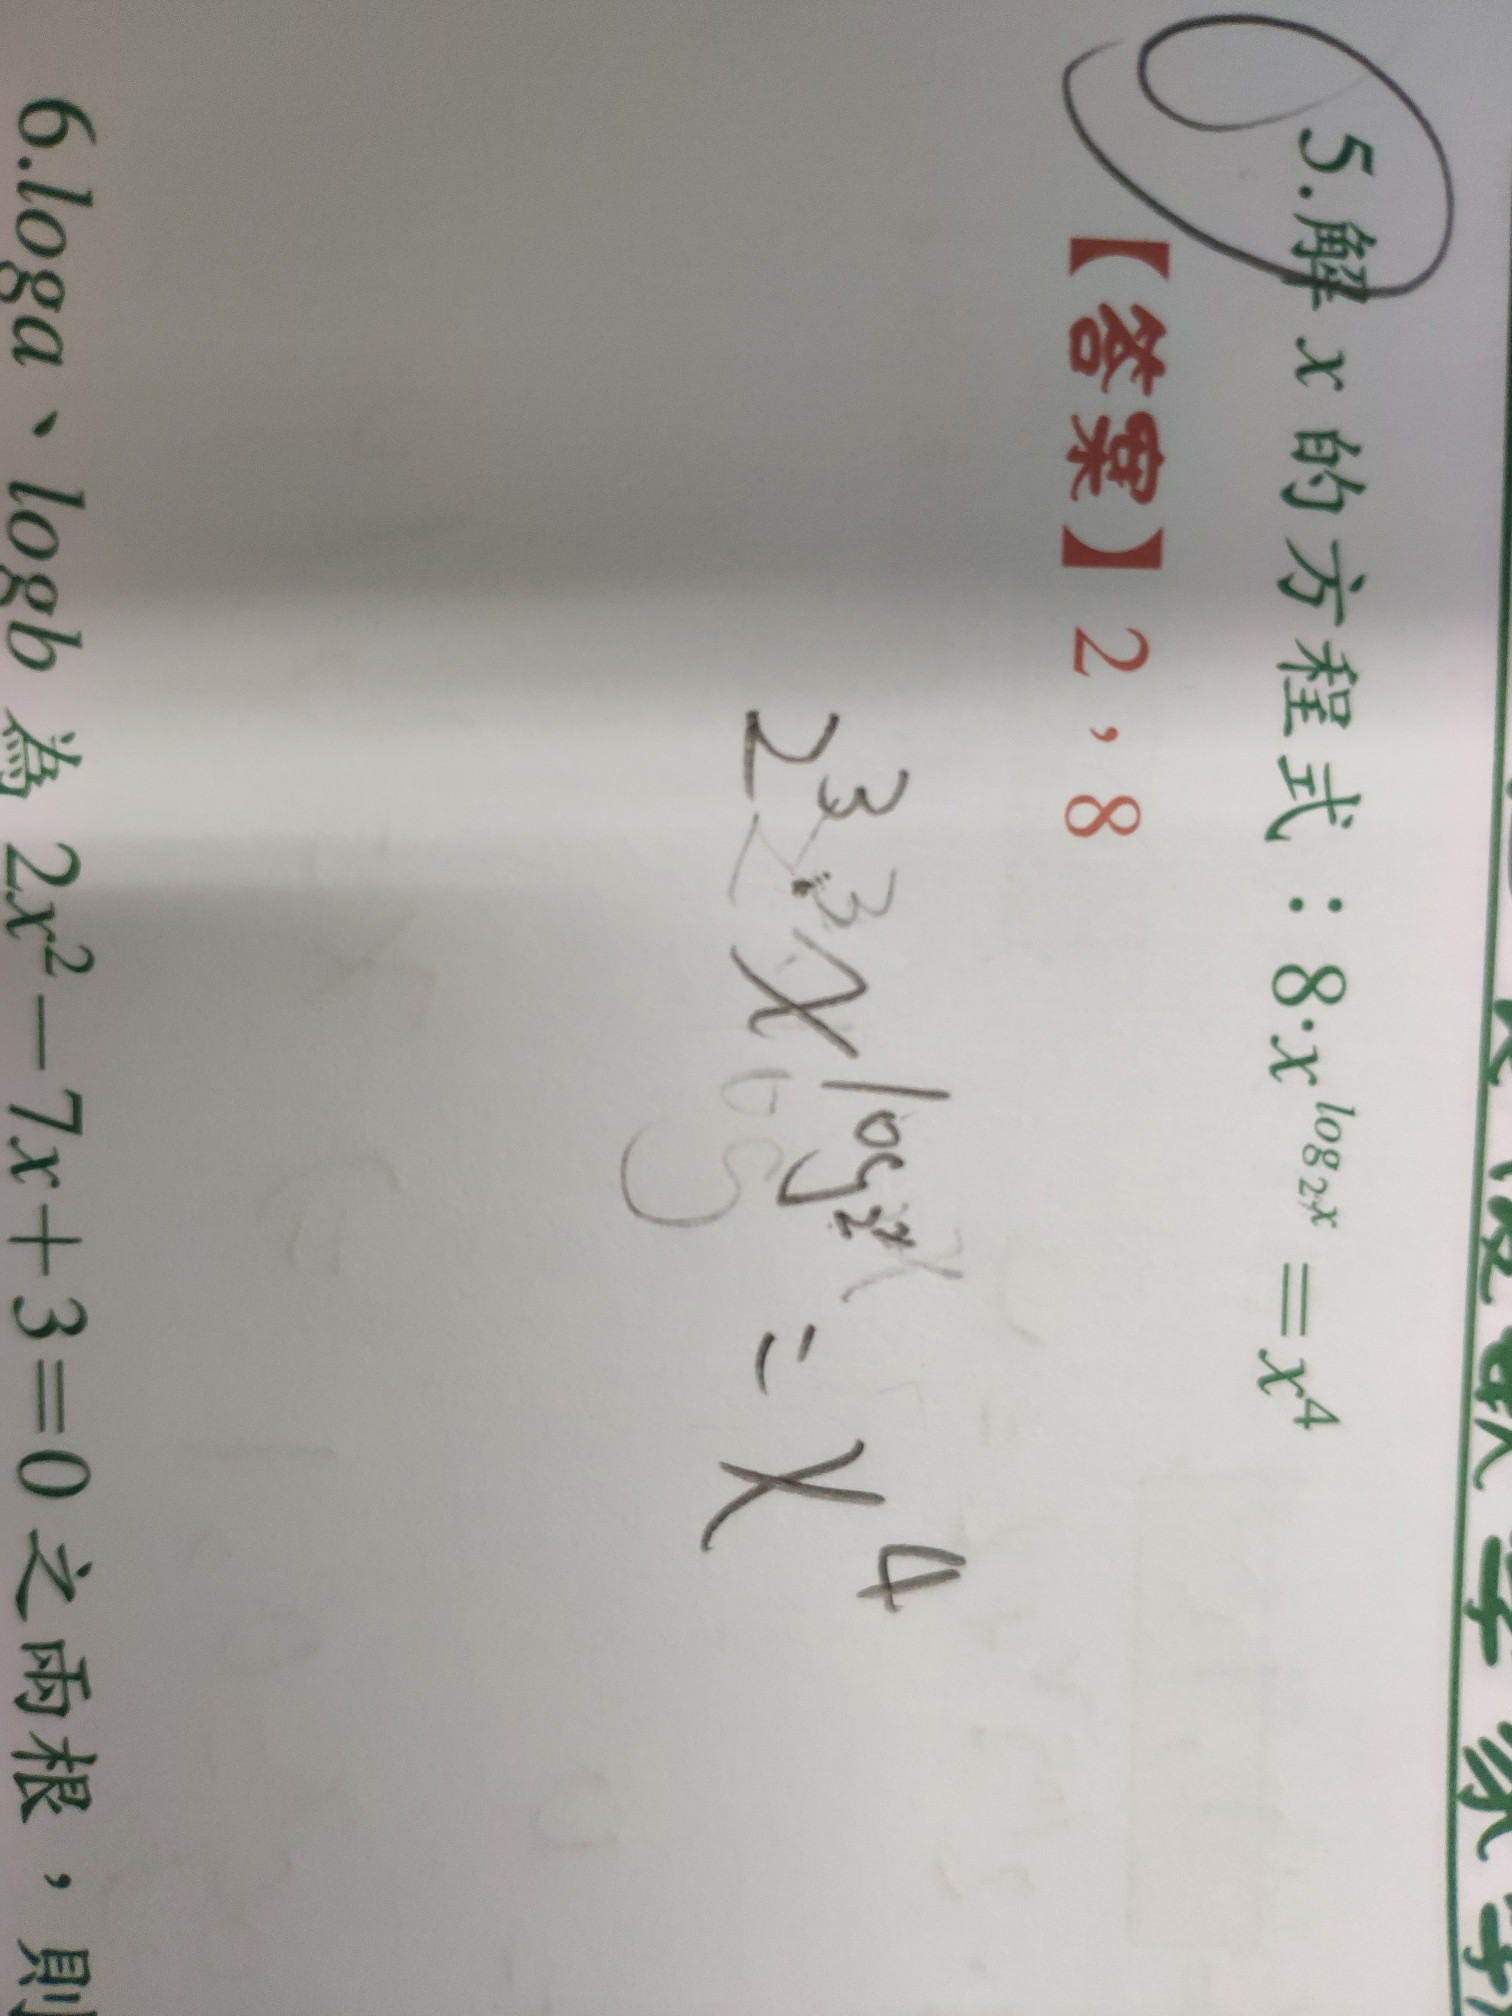 5.解 x 的方程式：8·x^{log₂x} = x⁴
【答案】2，8
2³ x^{log₂x} = x⁴
6.loga、logb 為 2x² − 7x + 3 = 0 之兩根，則